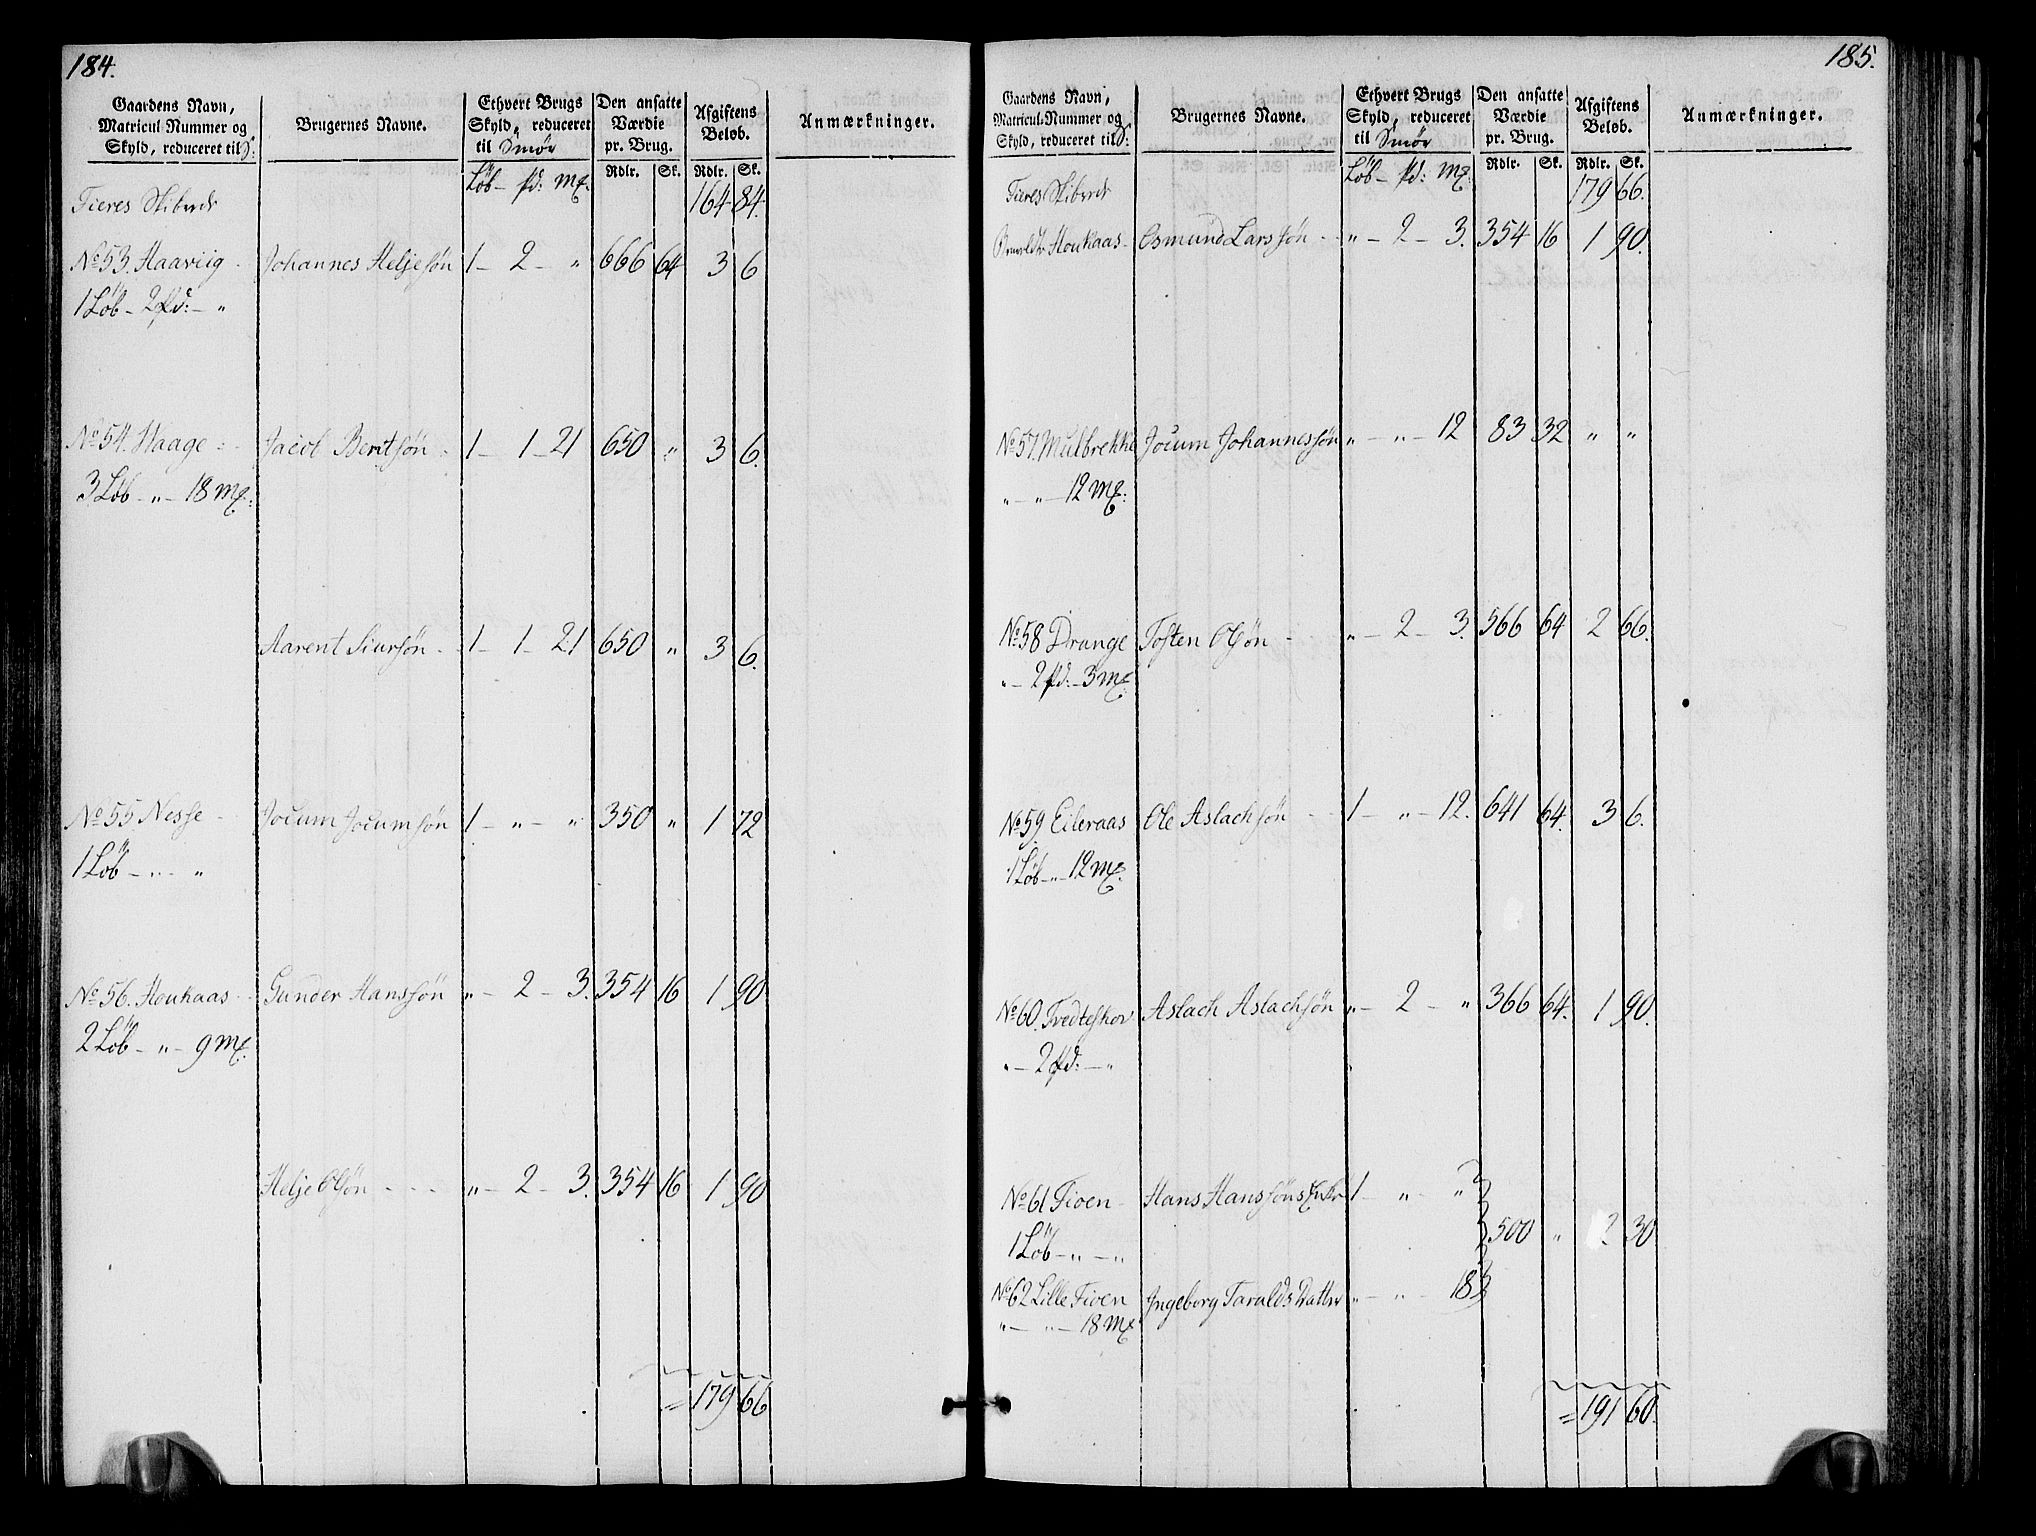 184.
Gaardens Navn, Matricul Nummer og Skyld, reduceret til S: | Brugernes Navne. | Ethvert Brugs Skyld, reduceret til Smör | Den ansatte Værdie pr. Brug. | Afgiftens Beløb. | Anmærkninger.
Löb – pd: mk: | Rdlr. | Sk. | Rdlr. | Sk.
Fieres Skibrede 164 84.
No 53. Haaviig Johannes Heljesøn 1 – 2 – „ 666 64 3 6
1 Löb – 2 pd: – „
No 54. Haage Jacob Bentsøn 1 – 1 – 21 650 „ 3 6.
3 Löb – „ – 18 mk:
Aarent Siursøn 1 – 1 – 21 650 „ 3 6.
No 55 Nesse Jocum Jocumsøn 1 – „ – „ 350 „ 1 72
1 Löb – „ – „
No 56. Houkaas Gunder Hanssøn „ – 2 – 3. 354 16 1 90
2 Löb – „ – 9 mk.
Helje Olsøn „ – 2 – 3. 354 16 1 90
= 179 66
185.
Gaardens Navn, Matricul-Nummer og Skyld, reduceret til S: | Brugernes Navne. | Ethvert Brugs Skyld, reduceret til Smør | Den ansatte Værdie pr. Brug. | Afgiftens Beløb. | Anmærkninger.
Löb – pd: mk: | Rdlr. | Sk. | Rdlr. | Sk.
Fieres Skibrede 179 66.
Houkaas Osmund Larssøn „ – 2 – 3. 354 16 1 90.
No 57. Mulbrekke Jocum Johannessøn „ – „ – 12 83 32 „ „
„ – „ – 12 mk:
No 58 Drange Tosten Olsøn „ – 2 – 3. 566 64 2 66.
„ – 2 pd: – 3 mk:
No 59 Eileraas Ole Aslachsøn 1 – „ – 12. 641 64. 3 6.
1 Löb – „ – 12 mk.
No 60. Tvedteskov Aslach Aslachsøn „ – 2 – „ 366 64. 1 90.
„ – 2 pd: – „
No 61 Fioen Hans Hanssøns Enke 1 – „ – „
1 Löb – „ – „ 500 „ 2 30
No 62 Lille Fioen Ingeborg Taralds Datter „ – „ – 18
„ – „ – 18 mk
= 191 60.